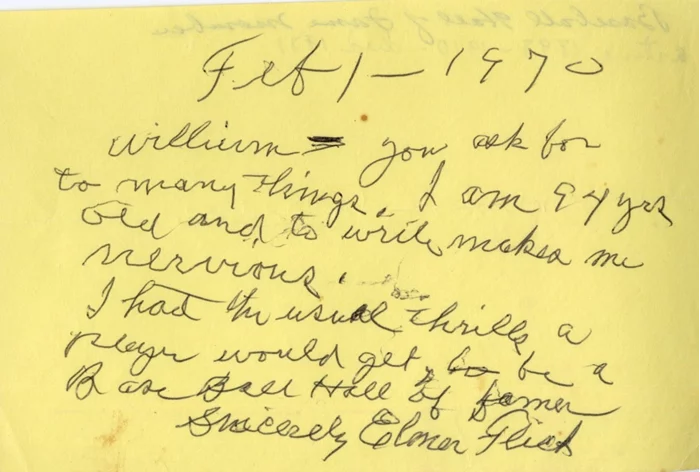 Feb 1 - 1970
William = you ask for
to many things. I am 94 yrs
old and to write makes me
nervious.
I had the usual thrills a
player would get, to be a
Base Ball Hall of famer
Sincerely Elmer Flick
Baseball Hall of Fame Member